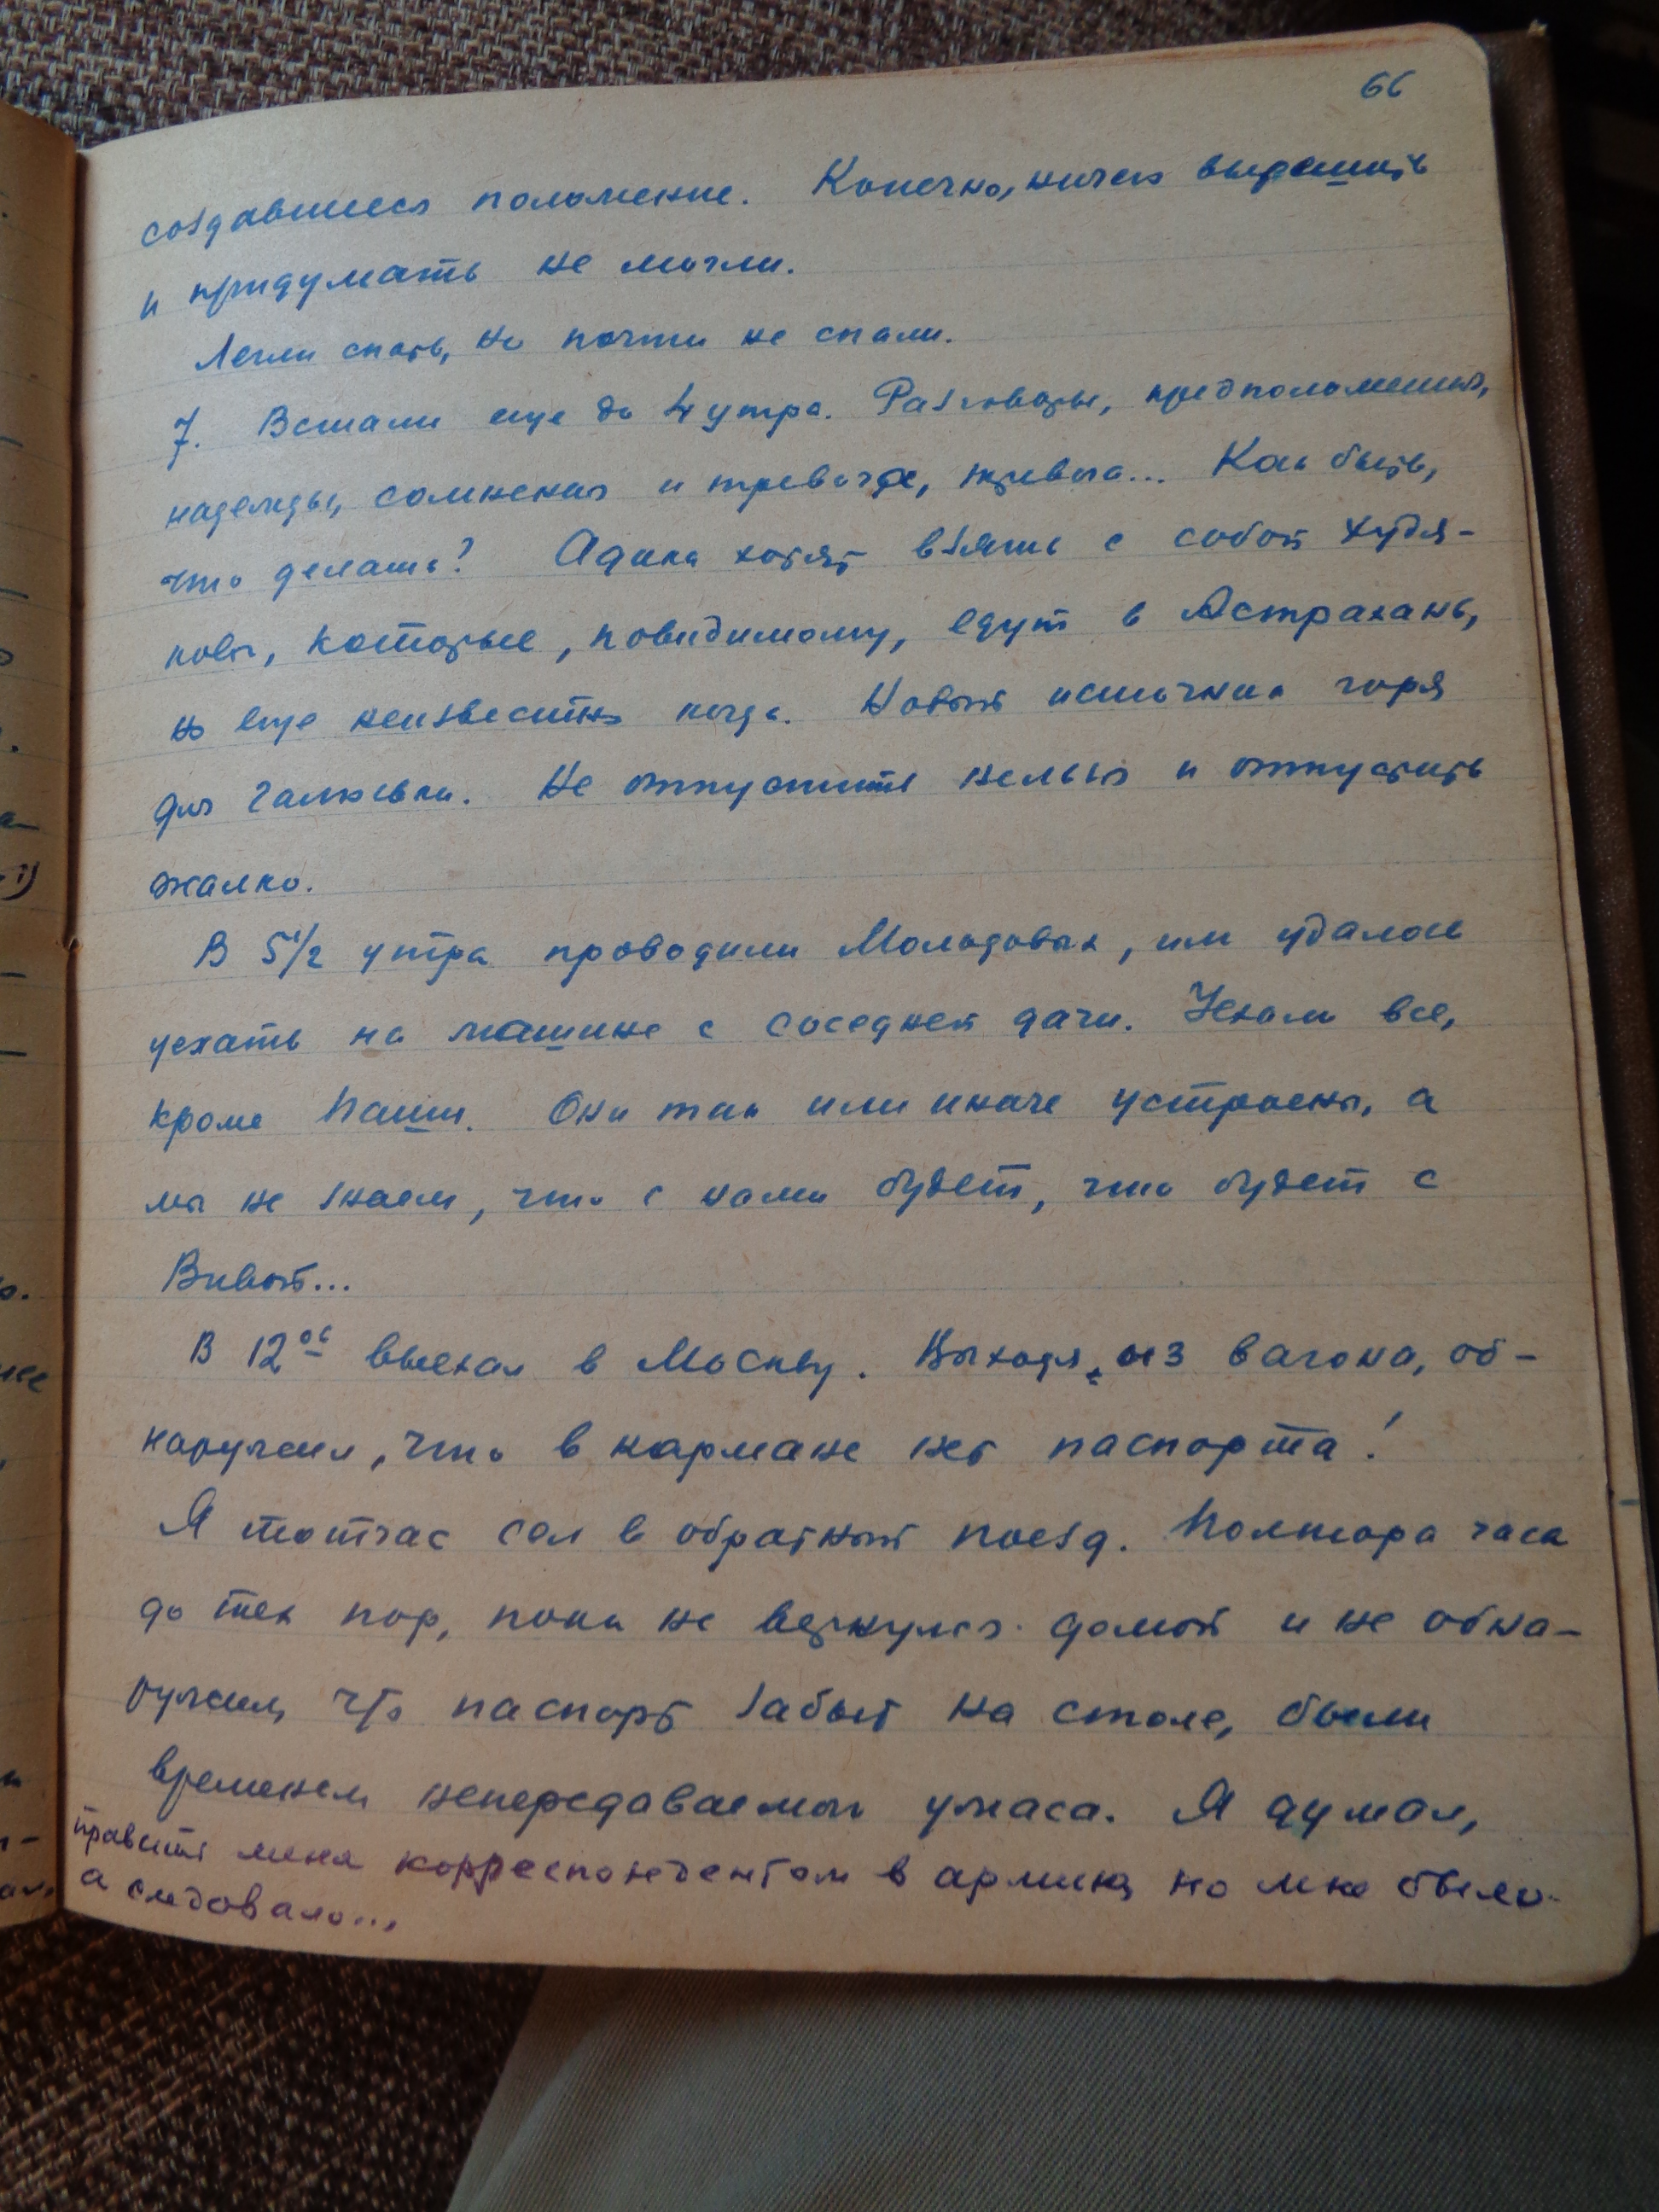 66
создавшееся положение. Конечно, ничего вырешить
и придумать не могли.
Легли спать, но почти не спали.
7. Встали еще до 4 утра. Разговоры, предположения,
надежды, сомнения и тревога, тревога... Как быть,
что делать? Адика хотят взять с собой Худя-
ковы, которые, повидимому, едут в Астрахань,
но еще неизвестно когда. Новый источник горя
для Галюськи. Не отпустить нельзя и отпустить
жалко.
В 5 1/2 утра проводили Молодовых, им удалось
уехать на машине с соседней дачи. Уехали все,
кроме Паши. Они так или иначе устроены, а
мы не знаем, что с нами будет, что будет с
Вивой...
В 12 00 выехал в Москву. Выходя из вагона, об-
наружил, что в кармане нет паспорта!
Я тотчас сел в обратный поезд. Полтора часа
до тех пор, пока не вернулся домой и не обна-
ружил, что паспорт забыт на столе, были
временем непередаваемого ужаса. Я думал,
править меня корреспондентом в армию, но мне было
а следовало...